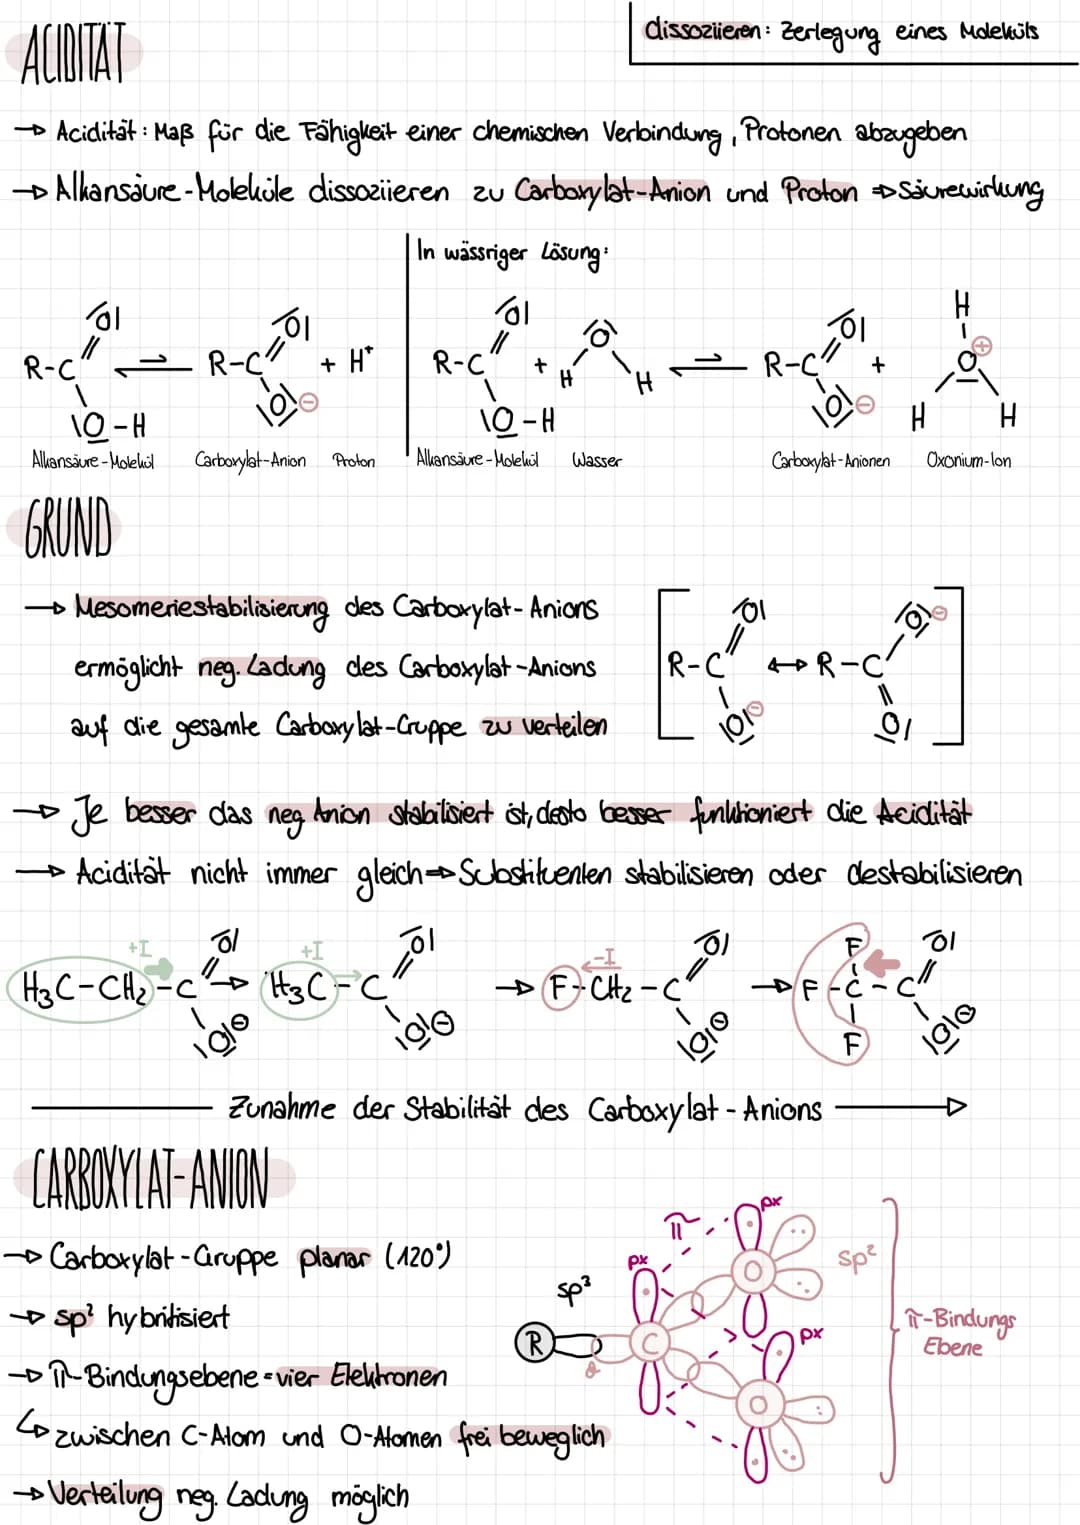 ACIDITÄT
dissoziieren: Zerlegung eines Moleküls
→ Acidität: Maß für die Fähigkeit einer chemischen Verbindung, Protonen abzugeben
→ Alkansäure-Moleküle dissoziieren zu Carboxylat-Anion und Proton ⇒ Säurewirkung
In wässriger Lösung:
R-C O O-H ⇌ R-C O O⊖ + H⁺
R-C O O-H + H O H ⇌ R-C O O⊖ + H O⊕ H H
Alkansäure-Molekül Carboxylat-Anion Proton Alkansäure-Molekül Wasser Carboxylat-Anionen Oxonium-Ion
GRUND
→ Mesomeriestabilisierung des Carboxylat-Anions
ermöglicht neg. Ladung des Carboxylat-Anions
auf die gesamte Carboxylat-Gruppe zu verteilen
[R-C O O⊖ ↔ R-C O⊖ O]
→ Je besser das neg. Anion stabilisiert ist, desto besser funktioniert die Acidität
→ Acidität nicht immer gleich ⇒ Substituenten stabilisieren oder destabilisieren
+I +I -I
H₃C-CH₂-C O O⊖ → H₃C-C O O⊖ → F-CH₂-C O O⊖ → F-C F F-C O O⊖
Zunahme der Stabilität des Carboxylat-Anions →
CARBOXYLAT-ANION
→ Carboxylat-Gruppe planar (120°)
→ sp² hybritisiert
→ π-Bindungsebene = vier Elektronen
↳ zwischen C-Atom und O-Atomen frei beweglich
→ Verteilung neg. Ladung möglich
π
px
px
px
sp³
sp²
R
C
O
O
π-Bindungs
Ebene